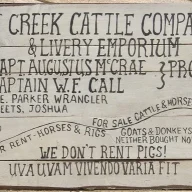 T CREEK CATTLE COMPA
& LIVERY EMPORIUM
APT. AUGUSTUS MCCRAE } PRO
APTAIN W.F. CALL
E. PARKER WRANGLER
EETS, JOSHUA
FOR SALE CATTLE & HORSE
R RENT-HORSES & RIGS
GOATS & DONKEYS
NEITHER BOUGHT NO
WE DON'T RENT PIGS!
UVA UVAM VIVENDO VARIA FIT